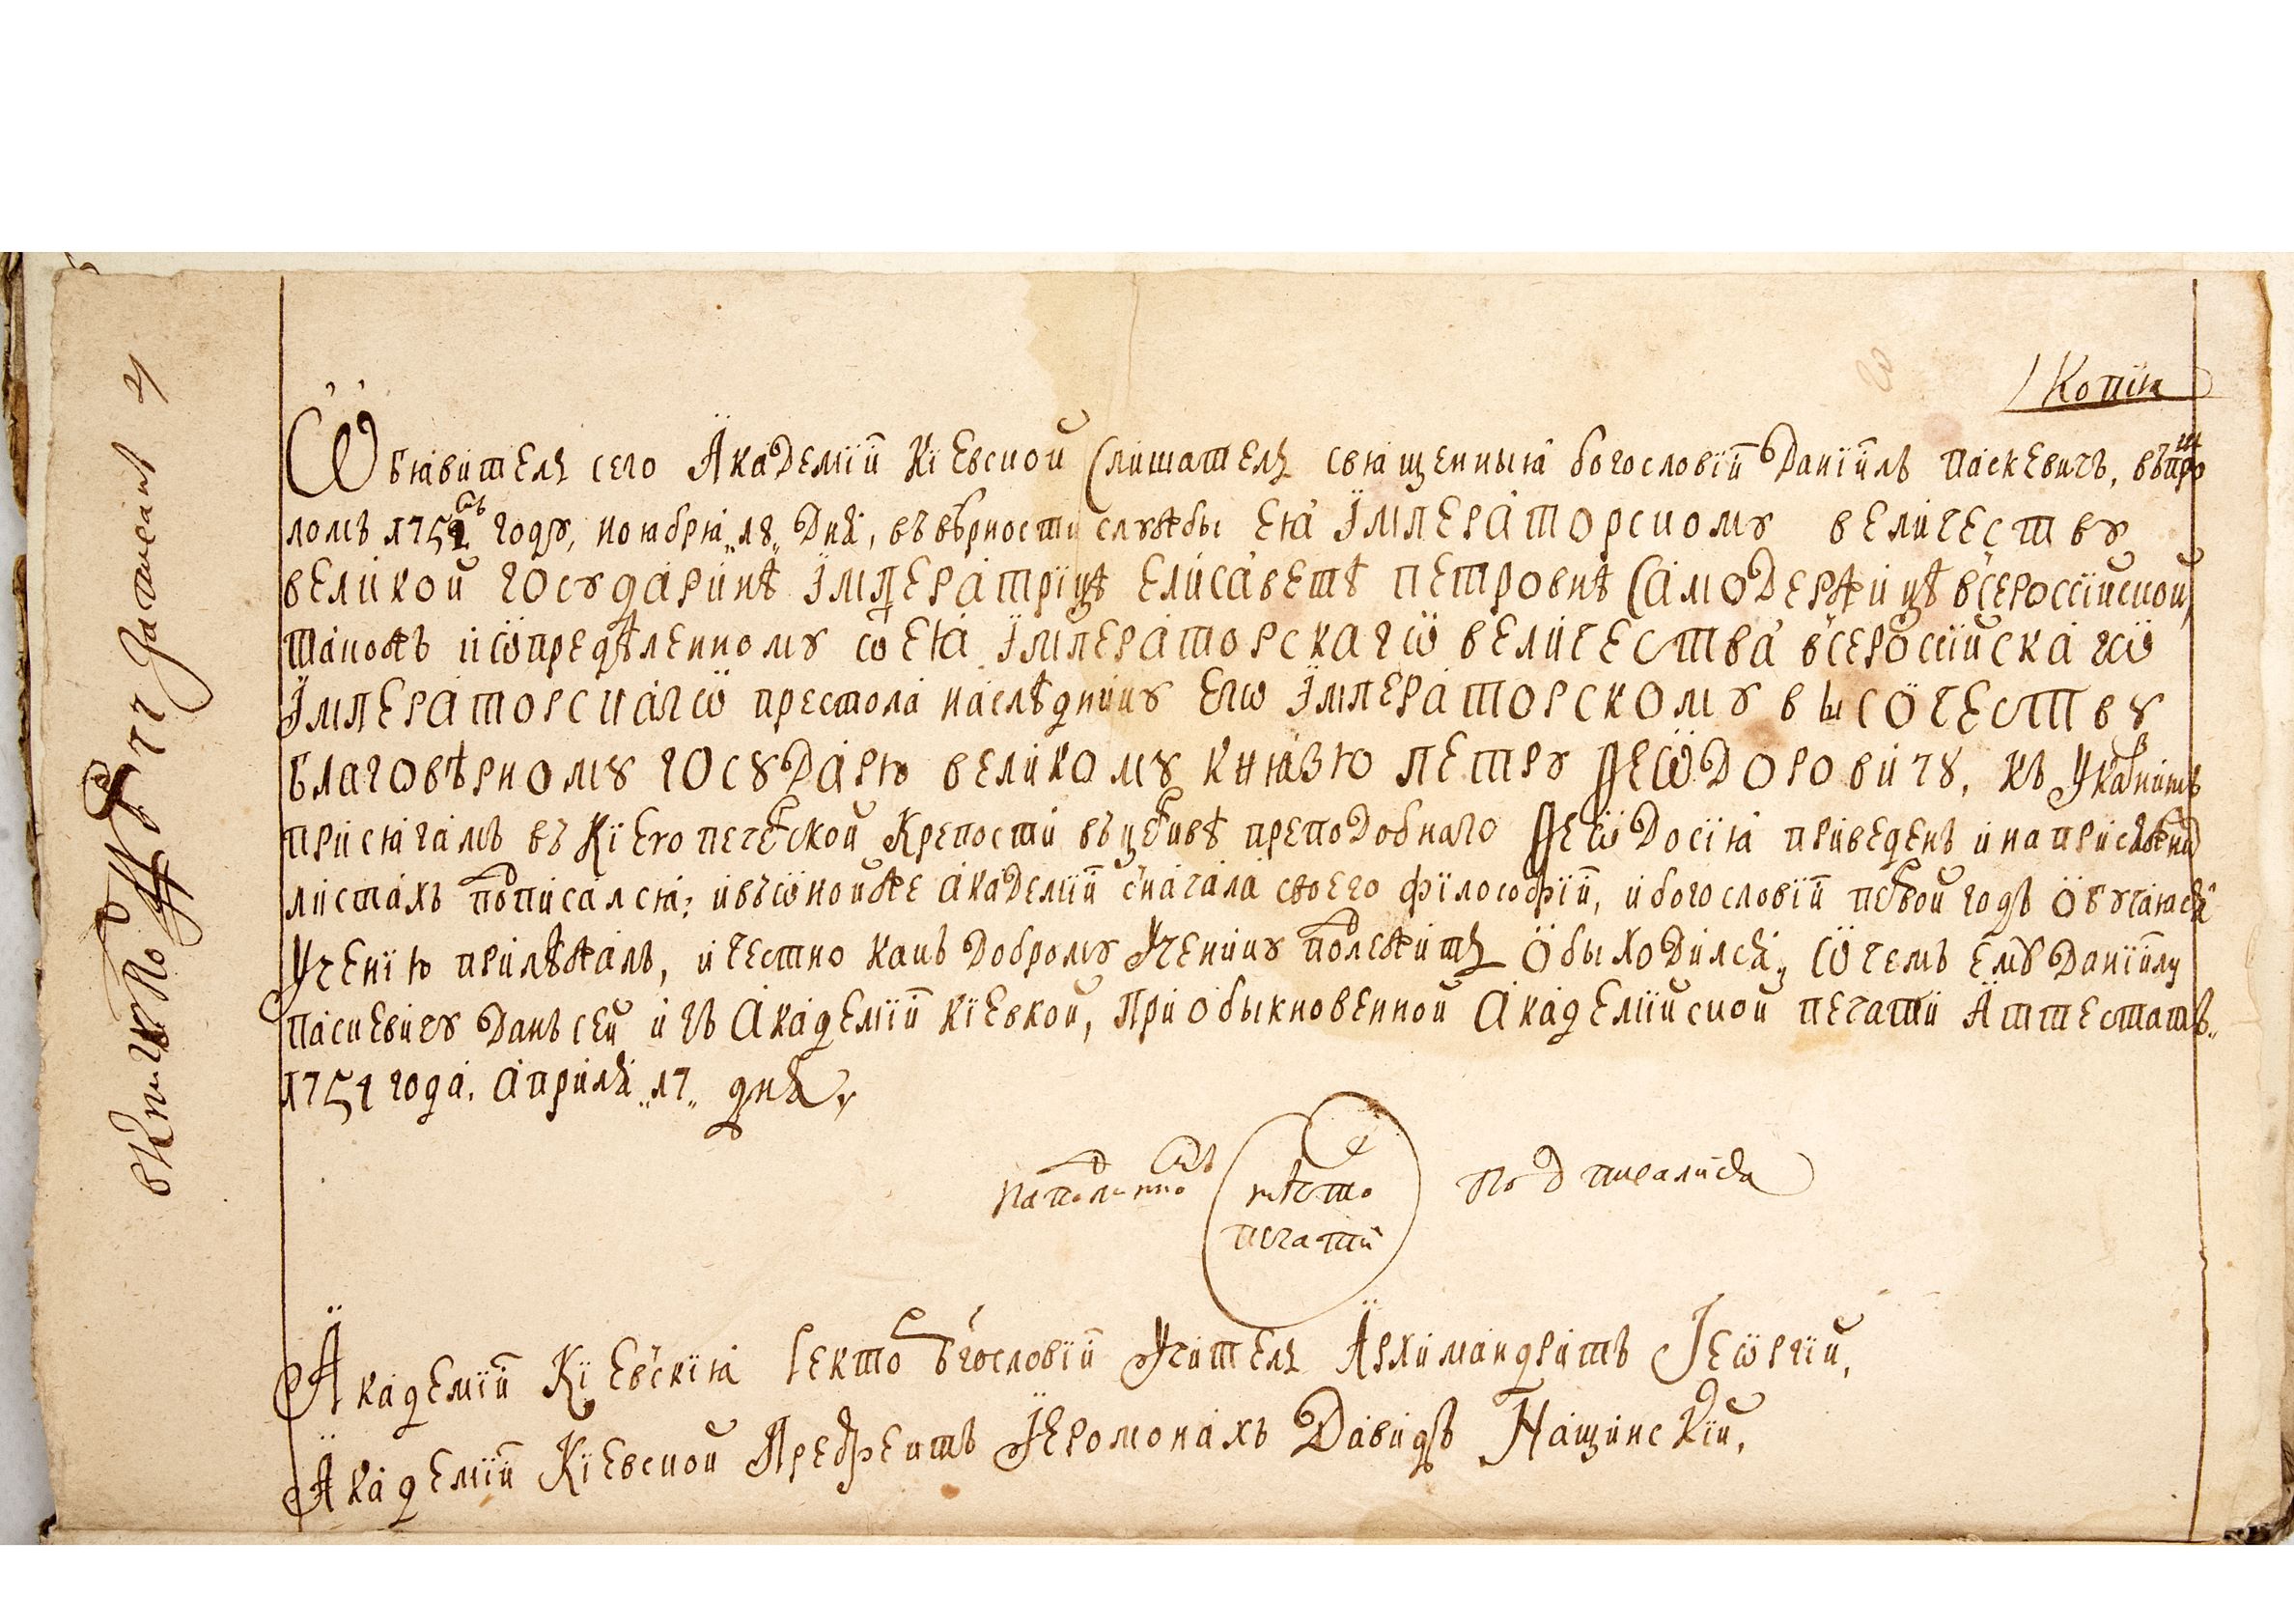 Копїя
Ѡбявитель сего Академїи Кїевской Слишатель священныя богословїи Данїилъ Паскевичъ, въ прош
ломъ 1751 году, ноября „18„ дня, въ вѣрности службы ЕЯ ЇМПЕРАТОРСКОМУ ВЕЛИЧЕСТВУ
ВЕЛИКОЙ ГОСУДАРИНѢ ЇМПЕРАТРИЦѢ ЕЛИСАВЕТѢ ПЕТРОВНѢ САМОДЕРЖИЦѢ ВСЕРОССЇЙСКОЙ,
такожъ и ѡпредѣленному ѿ ЕЯ ЇМПЕРАТОРСКАГѠ ВЕЛИЧЕСТВА ВСЕРОССЇЙСКАГѠ
ЇМПЕРАТОРСКАГѠ престола наслѣднику Егѡ ЇМПЕРАТОРСКОМУ ВЫСОЧЕСТВУ
БЛАГОВѢРНОМУ ГОСУДАРЮ ВЕЛИКОМУ КНЯЗЮ ПЕТРУ ѲЕѠДОРОВИЧУ, къ
присягамъ въ Кїево печерской Крепости въ церквѣ преподобнаго Ѳеѡдосїя приведенъ и на
листахъ подписался; и въ ѡной же академїи сначала своего фїлософїи, и богословїи первой годъ ѡбучаяся
Ученїю прилѣжалъ, и честно какъ доброму Ученику подлежитъ Обыходился„ Ѡ чемъ ему Данїилу
Паскевичу данъ сей изъ Академїи Кїевкой, при обыкновенной Академїйской печати Аттестатъ„
1754 года. Априля „17„ дня„
На подлинномъ
мѣсто
печати
подписались
Академїи Кїевскїя Ректоръ богословїи Учитель Архимандритъ Геѡргїй,
Академїи Кїевской Префектъ Їеромонахъ Давидъ Нащинскїй,